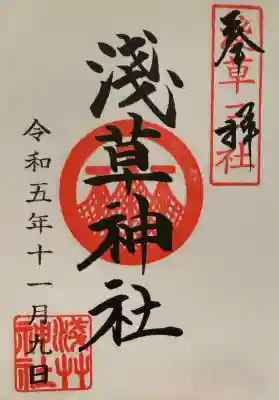 奉拝
浅草三社
淺草神社
令和五年十一月九日
淺草神社